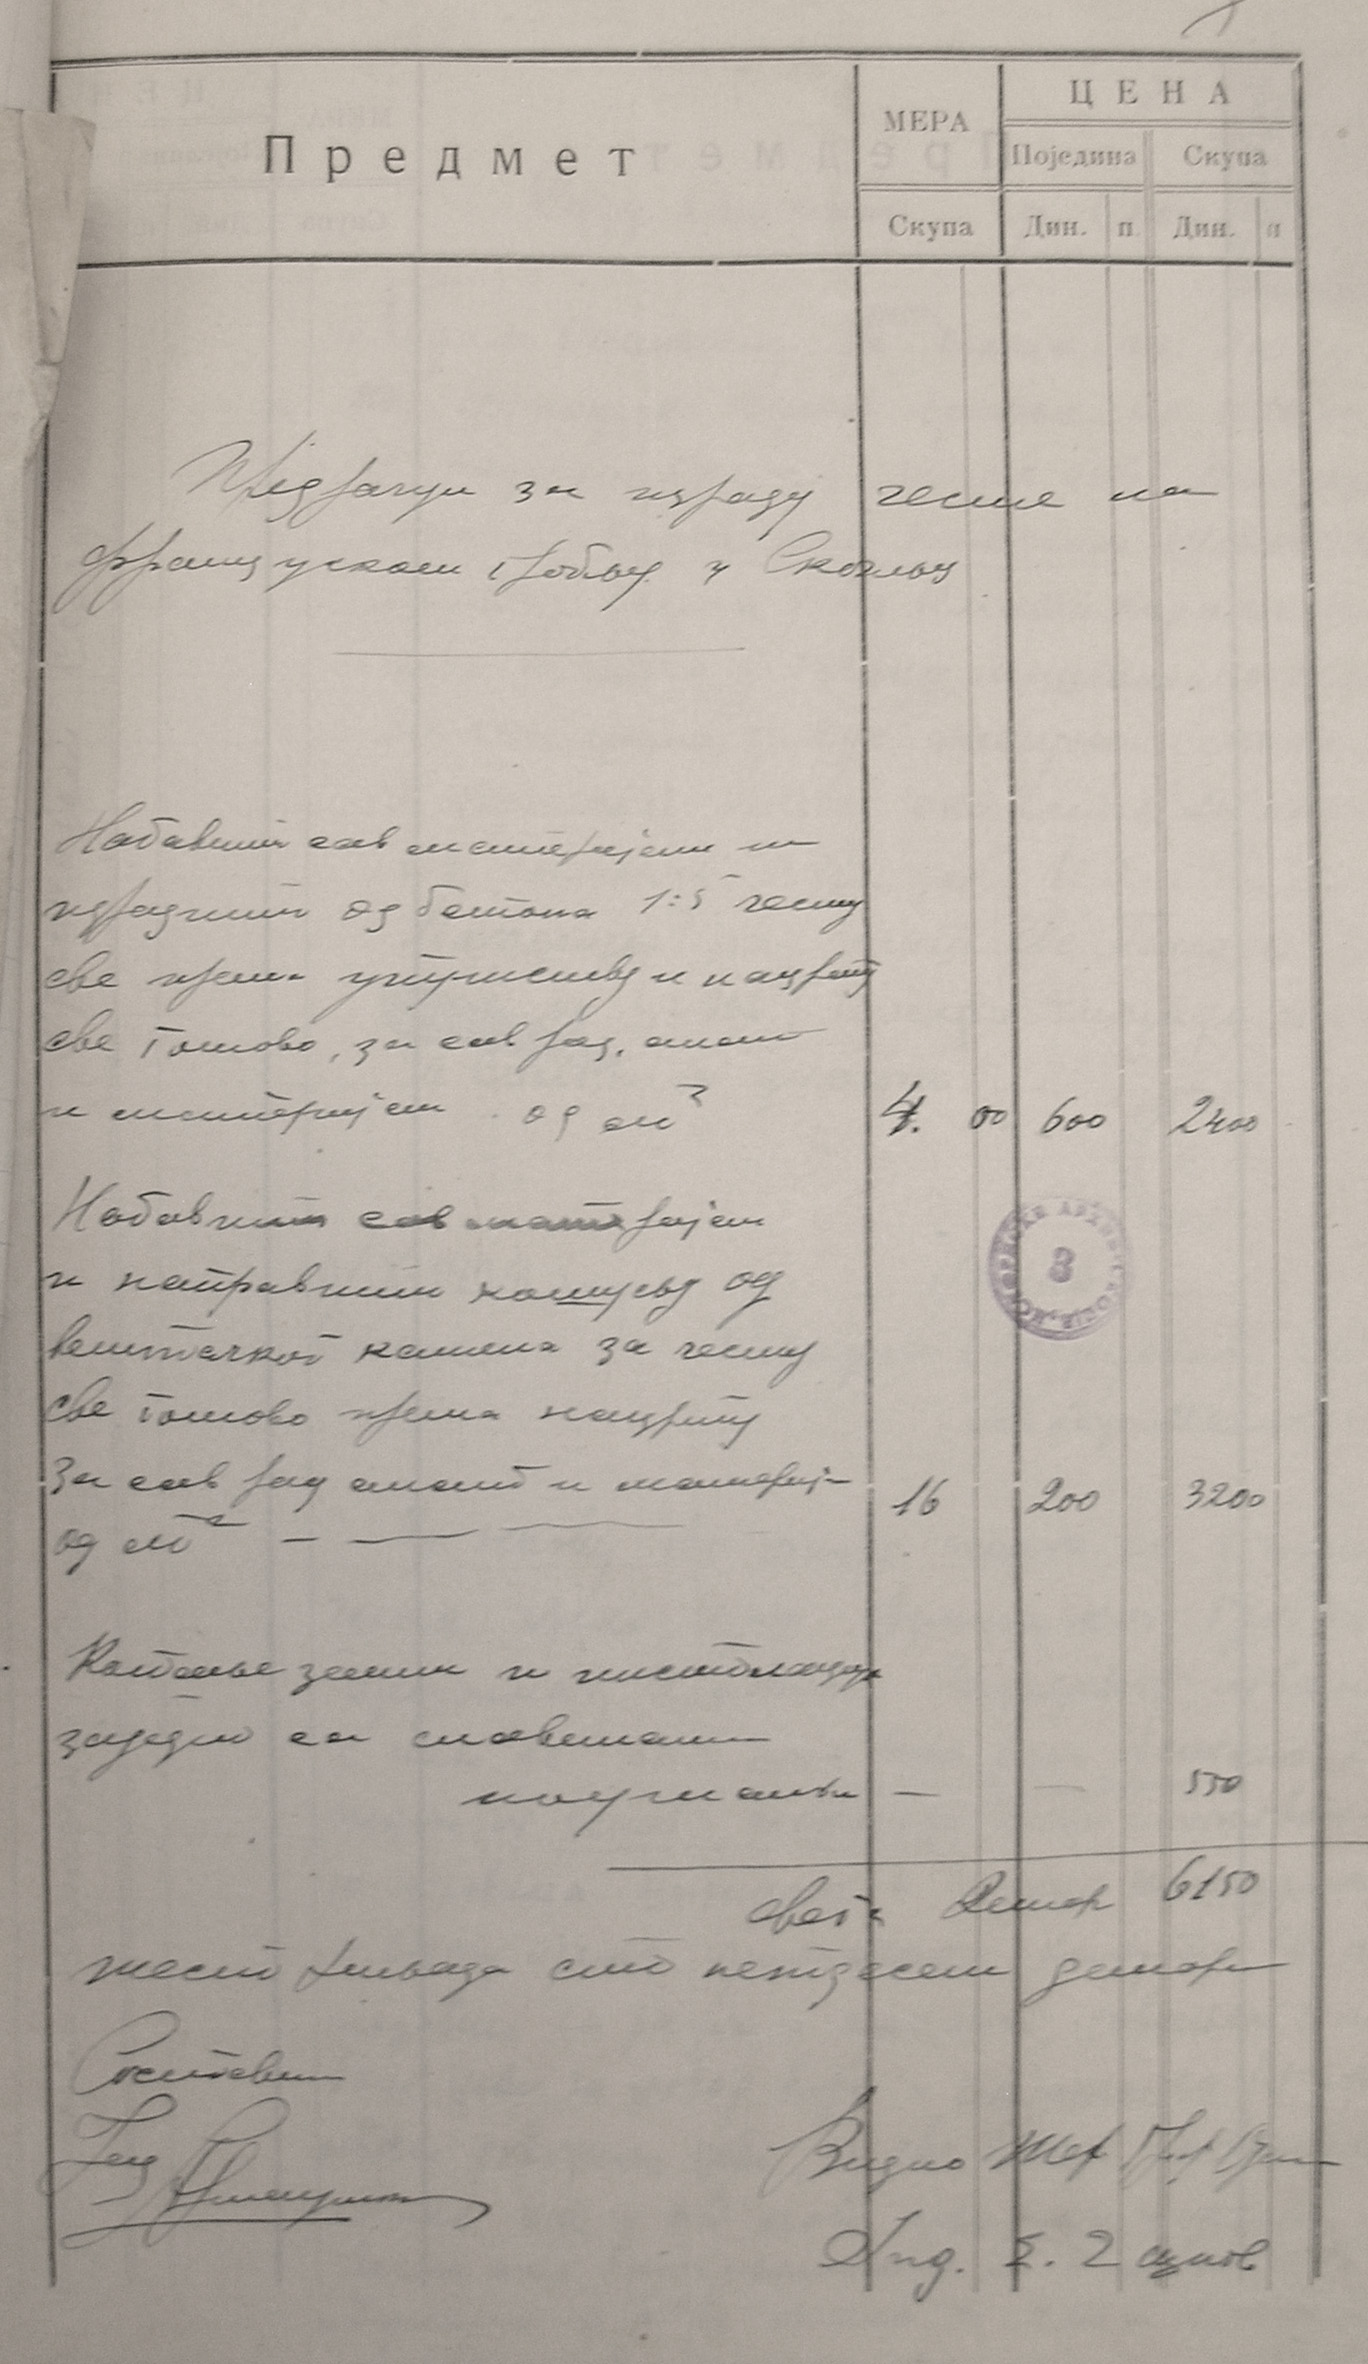 Предмет
МЕРА
ЦЕНА
Поједина Скупа
Скупа Дин. п Дин. п
Предрачун за израду чесме на
француском гробљу у Скопљу
Набавити сав материјал и
израдити од бетона 1:5 чесму
све према упутству и нацрту
све готово, за сав рад, алат
и материјал од м³ 4. 00 600 2400
Набавити сав материјал
и направити
вештачког камена за чесму
све готово према нацрту
За сав рад алат и материјал 16 200 3200
од м² — — —
Копање земље и инсталација
заједно са славинама
— — 550
свега Динар 6150
шест хиљада сто педесет динара
Саставио
Видио Шеф
Инг.